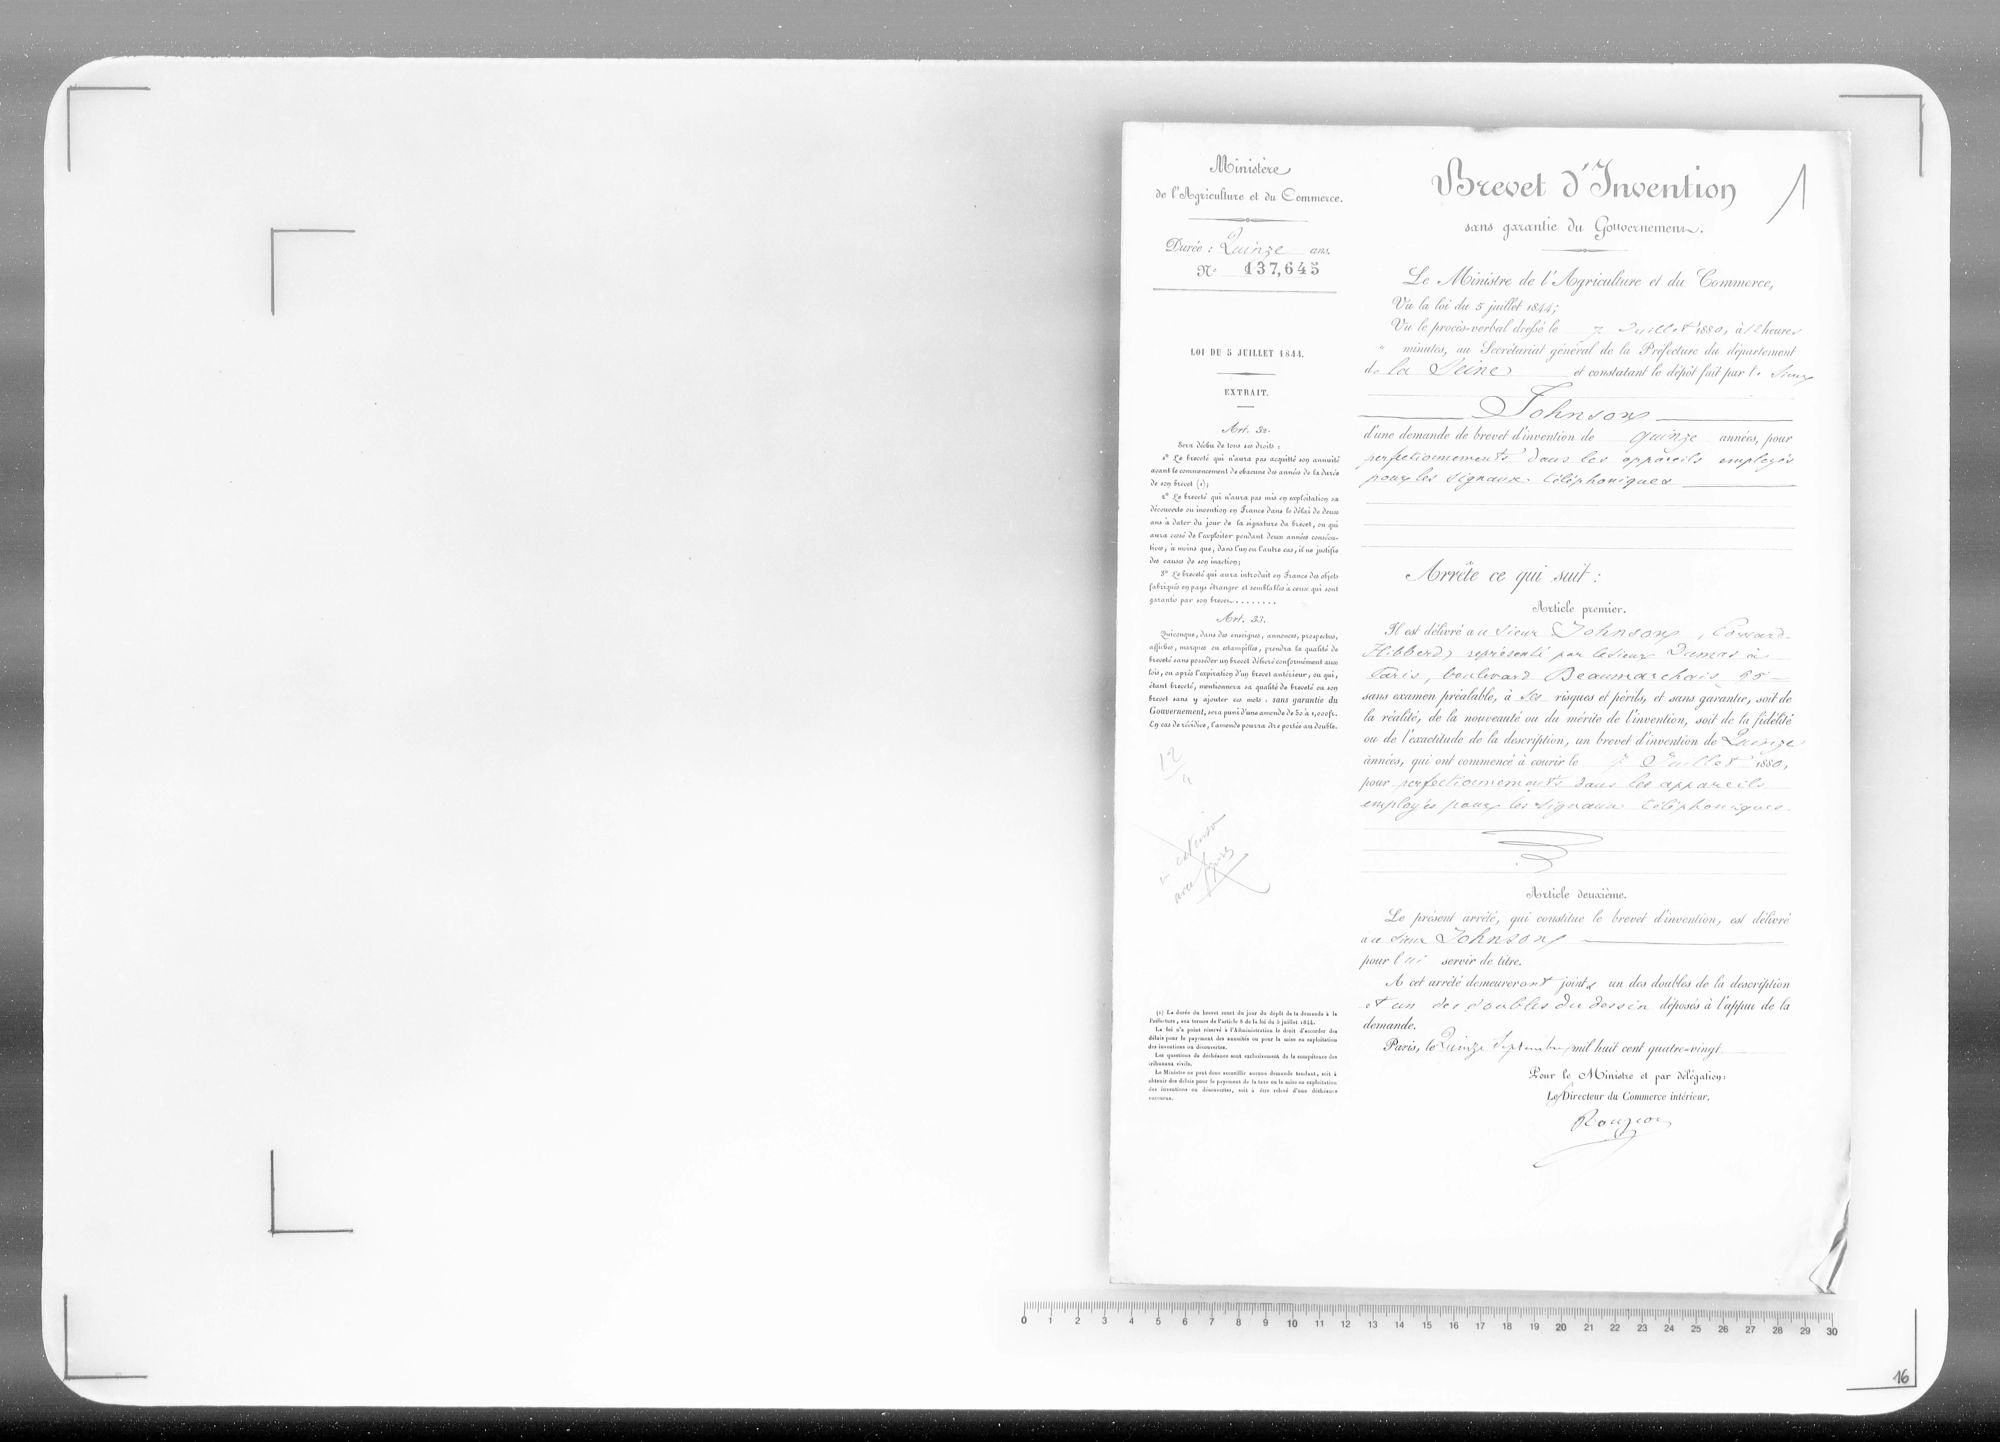 Ministère
de l'Agriculture et du Commerce.
Durée : Quinze ans.
N° 137,645
LOI DU 5 JUILLET 1844.
EXTRAIT.
Art. 32.
Sera déchu de tous ses droits :
1° Le breveté qui n'aura pas acquitté son annuité
avant le commencement de chacune des années de la durée
de son brevet (1);
2° Le breveté qui n'aura pas mis en exploitation sa
découverte ou invention en France dans le délai de deux
ans à dater du jour de la signature du brevet, ou qui
aura cessé de l'exploiter pendant deux années consécu-
tives, à moins que, dans l'un ou l'autre cas, il ne justifie
des causes de son inaction;
3° Le breveté qui aura introduit en France des objets
fabriqués en pays étranger et semblables à ceux qui sont
garantis par son brevet........
Art. 33.
Quiconque, dans des enseignes, annonces, prospectus,
affiches, marques ou estampilles, prendra la qualité de
breveté sans posséder un brevet délivré conformément aux
lois, ou après l'expiration d'un brevet antérieur, ou qui,
étant breveté, mentionnera sa qualité de breveté ou son
brevet sans y ajouter ces mots : sans garantie du
Gouvernement, sera puni d'une amende de 50 à 1,000 fr.
En cas de récidive, l'amende pourra être portée au double.
12
avec
(1) La durée du brevet court du jour du dépôt de la demande à la
Préfecture, aux termes de l'article 8 de la loi du 5 juillet 1844.
La loi n'a point réservé à l'Administration le droit d'accorder des
délais pour le payement des annuités ou pour la mise en exploitation
des inventions ou découvertes.
Les questions de déchéance sont exclusivement de la compétence des
tribunaux civils.
Le Ministre ne peut donc accueillir aucune demande tendant, soit à
obtenir des délais pour le payement de la taxe ou la mise en exploitation
des inventions ou découvertes, soit à être relevé d'une déchéance
encourue.
Brevet d'Invention
1
sans garantie du Gouvernement.
Le Ministre de l'Agriculture et du Commerce,
Vu la loi du 5 juillet 1844;
Vu le procès-verbal dressé le 7 Juillet 1880, à 12 heures
" minutes, au Secrétariat général de la Préfecture du département
de la Seine et constatant le dépôt fait par le Sieur
Johnson
d'une demande de brevet d'invention de quinze années, pour
perfectionnements dans les appareils employés
pour les signaux téléphoniques
Arrête ce qui suit :
Article premier.
Il est délivré au Sieur Johnson,
Hibberd, représenté par le Sieur Dumas à
Paris, boulevard Beaumarchais 95
sans examen préalable, à ses risques et périls, et sans garantie, soit de
la réalité, de la nouveauté ou du mérite de l'invention, soit de la fidélité
ou de l'exactitude de la description, un brevet d'invention de Quinze
années, qui ont commencé à courir le 7 Juillet 1880,
pour perfectionnements dans les appareils
employés pour les signaux téléphoniques.
Article deuxième.
Le présent arrêté, qui constitue le brevet d'invention, est délivré
au Sieur Johnson
pour lui servir de titre.
A cet arrêté demeureront joints un des doubles de la description
et un des doubles du dessin déposés à l'appui de la
demande.
Paris, le Quinze Septembre mil huit cent quatre-vingt
Pour le Ministre et par délégation:
Le Directeur du Commerce intérieur,
0 1 2 3 4 5 6 7 8 9 10 11 12 13 14 15 16 17 18 19 20 21 22 23 24 25 26 27 28 29 30
16